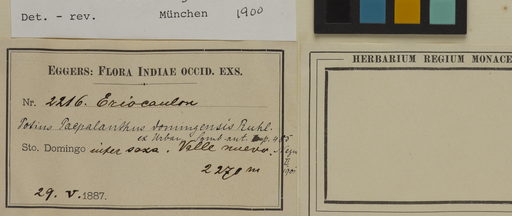 Det. - rev. München 1900
HERBARIUM REGIUM MONACE
EGGERS: FLORA INDIAE OCCID. EXS.
Nr. 2216. Eriocaulon
Potius Paepalanthus domingensis Ruhl.
ex Urban Symb. ant. p. 485
Sto. Domingo inter saxa. Valle nuevo.
2270 m
29. V. 1887.